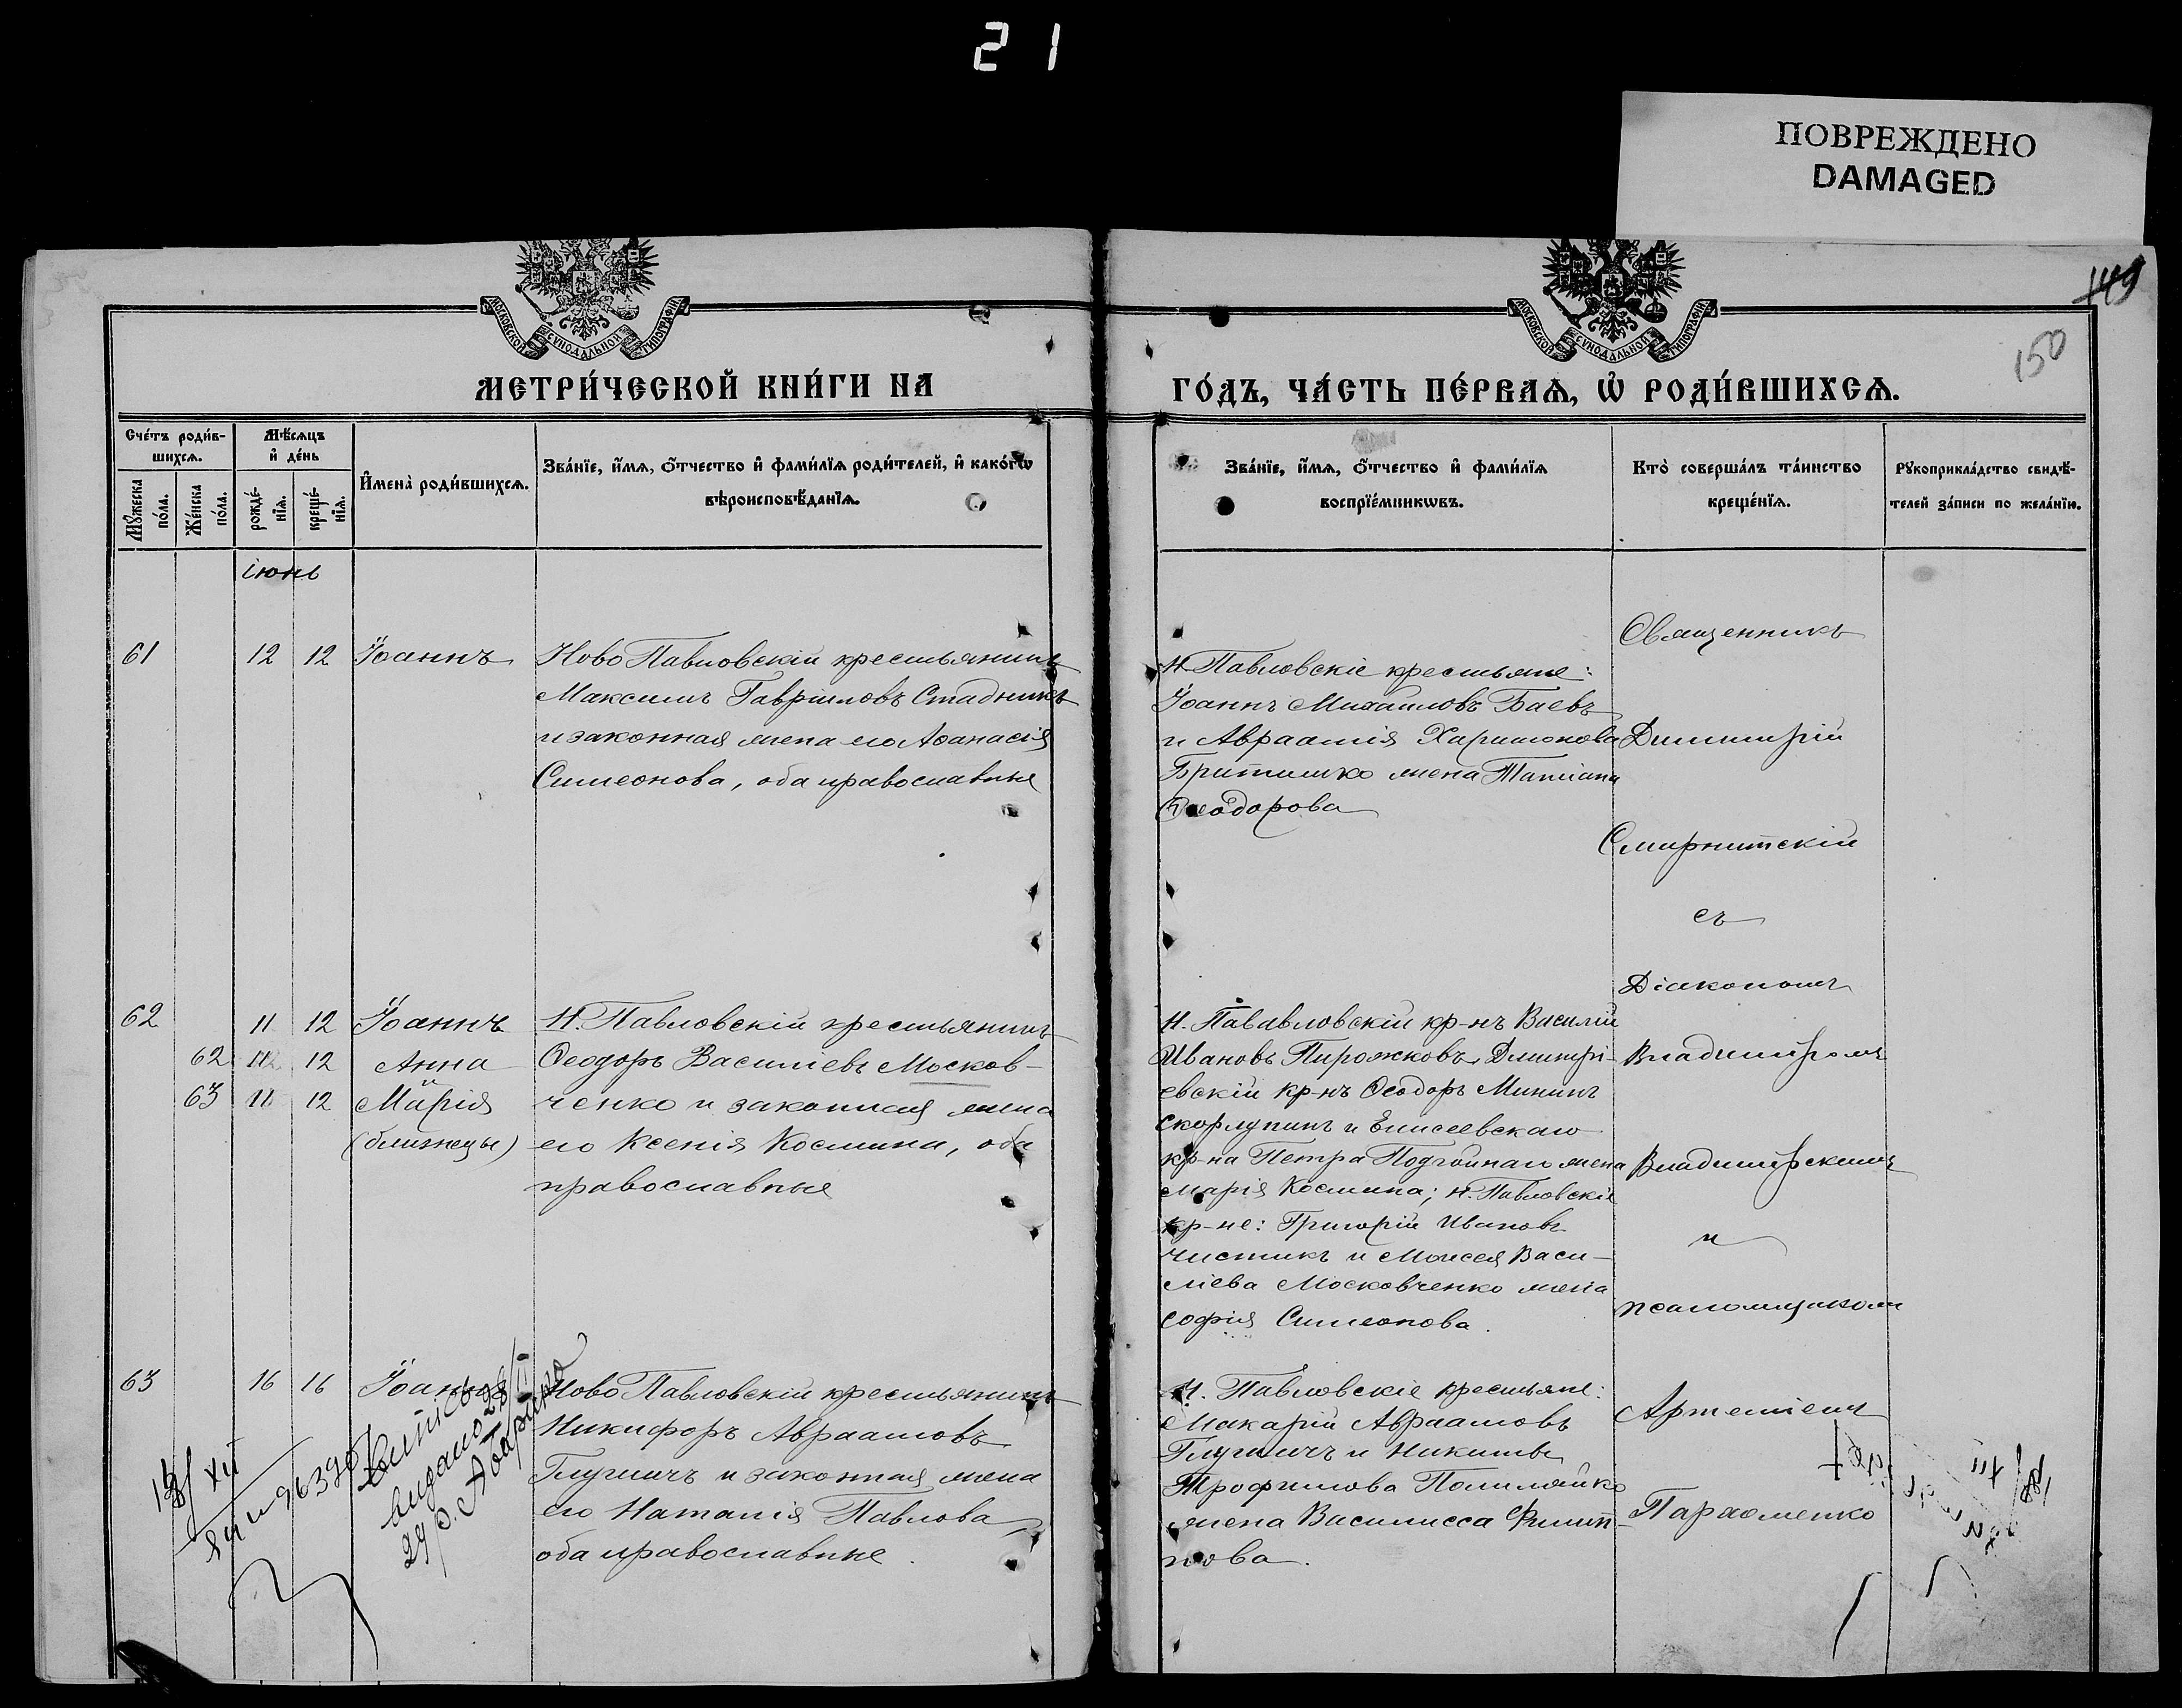 21
ПОВРЕЖДЕНО
DAMAGED
149
150
МОСКОВСКОЙ СѴНОДАЛЬНОЙ ТИПОГРАФІИ
МОСКОВСКОЙ СѴНОДАЛЬНОЙ ТИПОГРАФІИ
МЕТРИ́ЧЕСКОЙ КНИ́ГИ НА
ГО́ДЪ, ЧА́СТЬ ПЕ́РВАѦ, Ѡ҆ РОДИ́ВШИХСѦ.
Сче́тъ роди́в-
шихсѧ.
Мꙋ́жеска
по́ла.
Же́нска
по́ла.
Мѣ́сѧцъ
и҆ де́нь
рожде́-
нїѧ.
креще́-
нїѧ.
И҆мена̀ роди́вшихсѧ.
Зва́нїе, и҆́мѧ, ѻ҆́тчество и҆ фами́лїѧ роди́телей, и҆ како́гѡ
вѣроисповѣ́данїѧ.
Зва́нїе, и҆́мѧ, ѻ҆́тчество и҆ фами́лїѧ
воспрїе́мникѡвъ.
Кто̀ соверша́лъ та́инство
креще́нїѧ.
Рꙋкоприкла́дство свидѣ́-
телей за́писи по жела́нїю.
іюнь
61 12 12 Іоаннъ
Ново Павловскій крестьянинъ
Максимъ Гавріиловъ Стадникъ
и законная жена его Аѳанасія
Симеонова, оба православные
Н. Павловскіе крестьяне:
Іоаннъ Михаиловъ Баевъ
и Авраамія Харитонова
Бритишко жена Татіана
Ѳеодорова
Священникъ
Димитрій
Смирнитскій
съ
Діакономъ
62 11 12 Іоаннъ
62 11 12 Анна
63 11 12 Марія
(близнецы)
Н. Павловскій крестьянинъ
Ѳеодоръ Василіевъ Москов-
ченко и законная жена
его Ксенія Космина, оба
православные
Н. Пававловскій кр-нъ Василій
Ивановъ Пирожковъ, Димитрі-
евскій кр-нъ Ѳеодоръ Мининъ
Скорлупинъ и Елисеевскаго
кр-на Петра жена
Марія Космина; Н. Павловскіе
кр-не: Григорій Ивановъ
Чистикъ и Моисея Васи-
ліева Московченко жена
Софія Симеонова.
Владиміромъ
Владимірскимъ
и
псаломщикомъ
63 16 16 Іоаннъ
Ново Павловскій крестьянинъ
Никифоръ Авраамовъ
и законная жена
его Наталія Павлова,
оба православные.
Н. Павловскіе крестьяне:
Макарій Авраамовъ
и Никиты
Трофимова
жена Василисса Филип-
пова.
Артеміемъ
Пархоменко
выдано